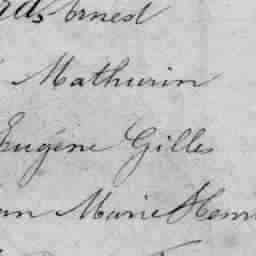 Ernest
Mathurin
Eugène Gilles
Marie Henri